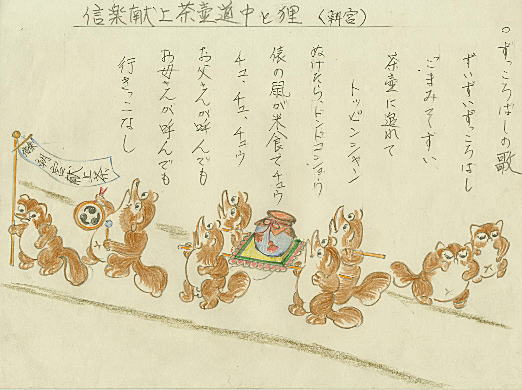 信楽献上茶壷道中と狸 〈朝宮〉
○ずっころばしの歌
ずいずいずっころばし
ごまみそずい
茶壷に追れて
トッピンシャン
ぬけたら、ドンドコショウ
俵の鼠が米食てチュウ
チュ、チュ、チュウ
お父さんが呼んでも
お母さんが呼んでも
行きっこなし
朝宮献上茶